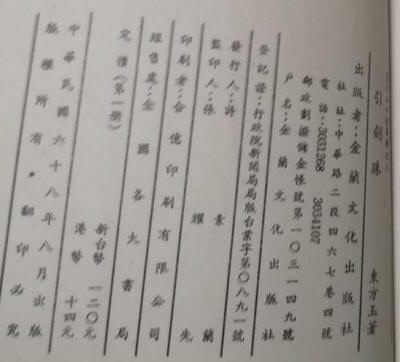 引劍珠　東方玉著
出版者：金蘭文化出版社
社址：中華路二段四六七巷四號
電話：3031268　3034107
郵政劃撥儲金帳號第一〇三一四九號
戶名：金蘭文化出版社
登記證：行政院新聞局局版台業字第〇八九一號
發行人：許素蘭
監印人：張耀先
印刷者：合億印刷有限公司
經售處：全國各大書局
定價（第一册）
新台幣　一二〇元
港幣　十四元
中華民國六十八年八月出版
版權所有．翻印必究